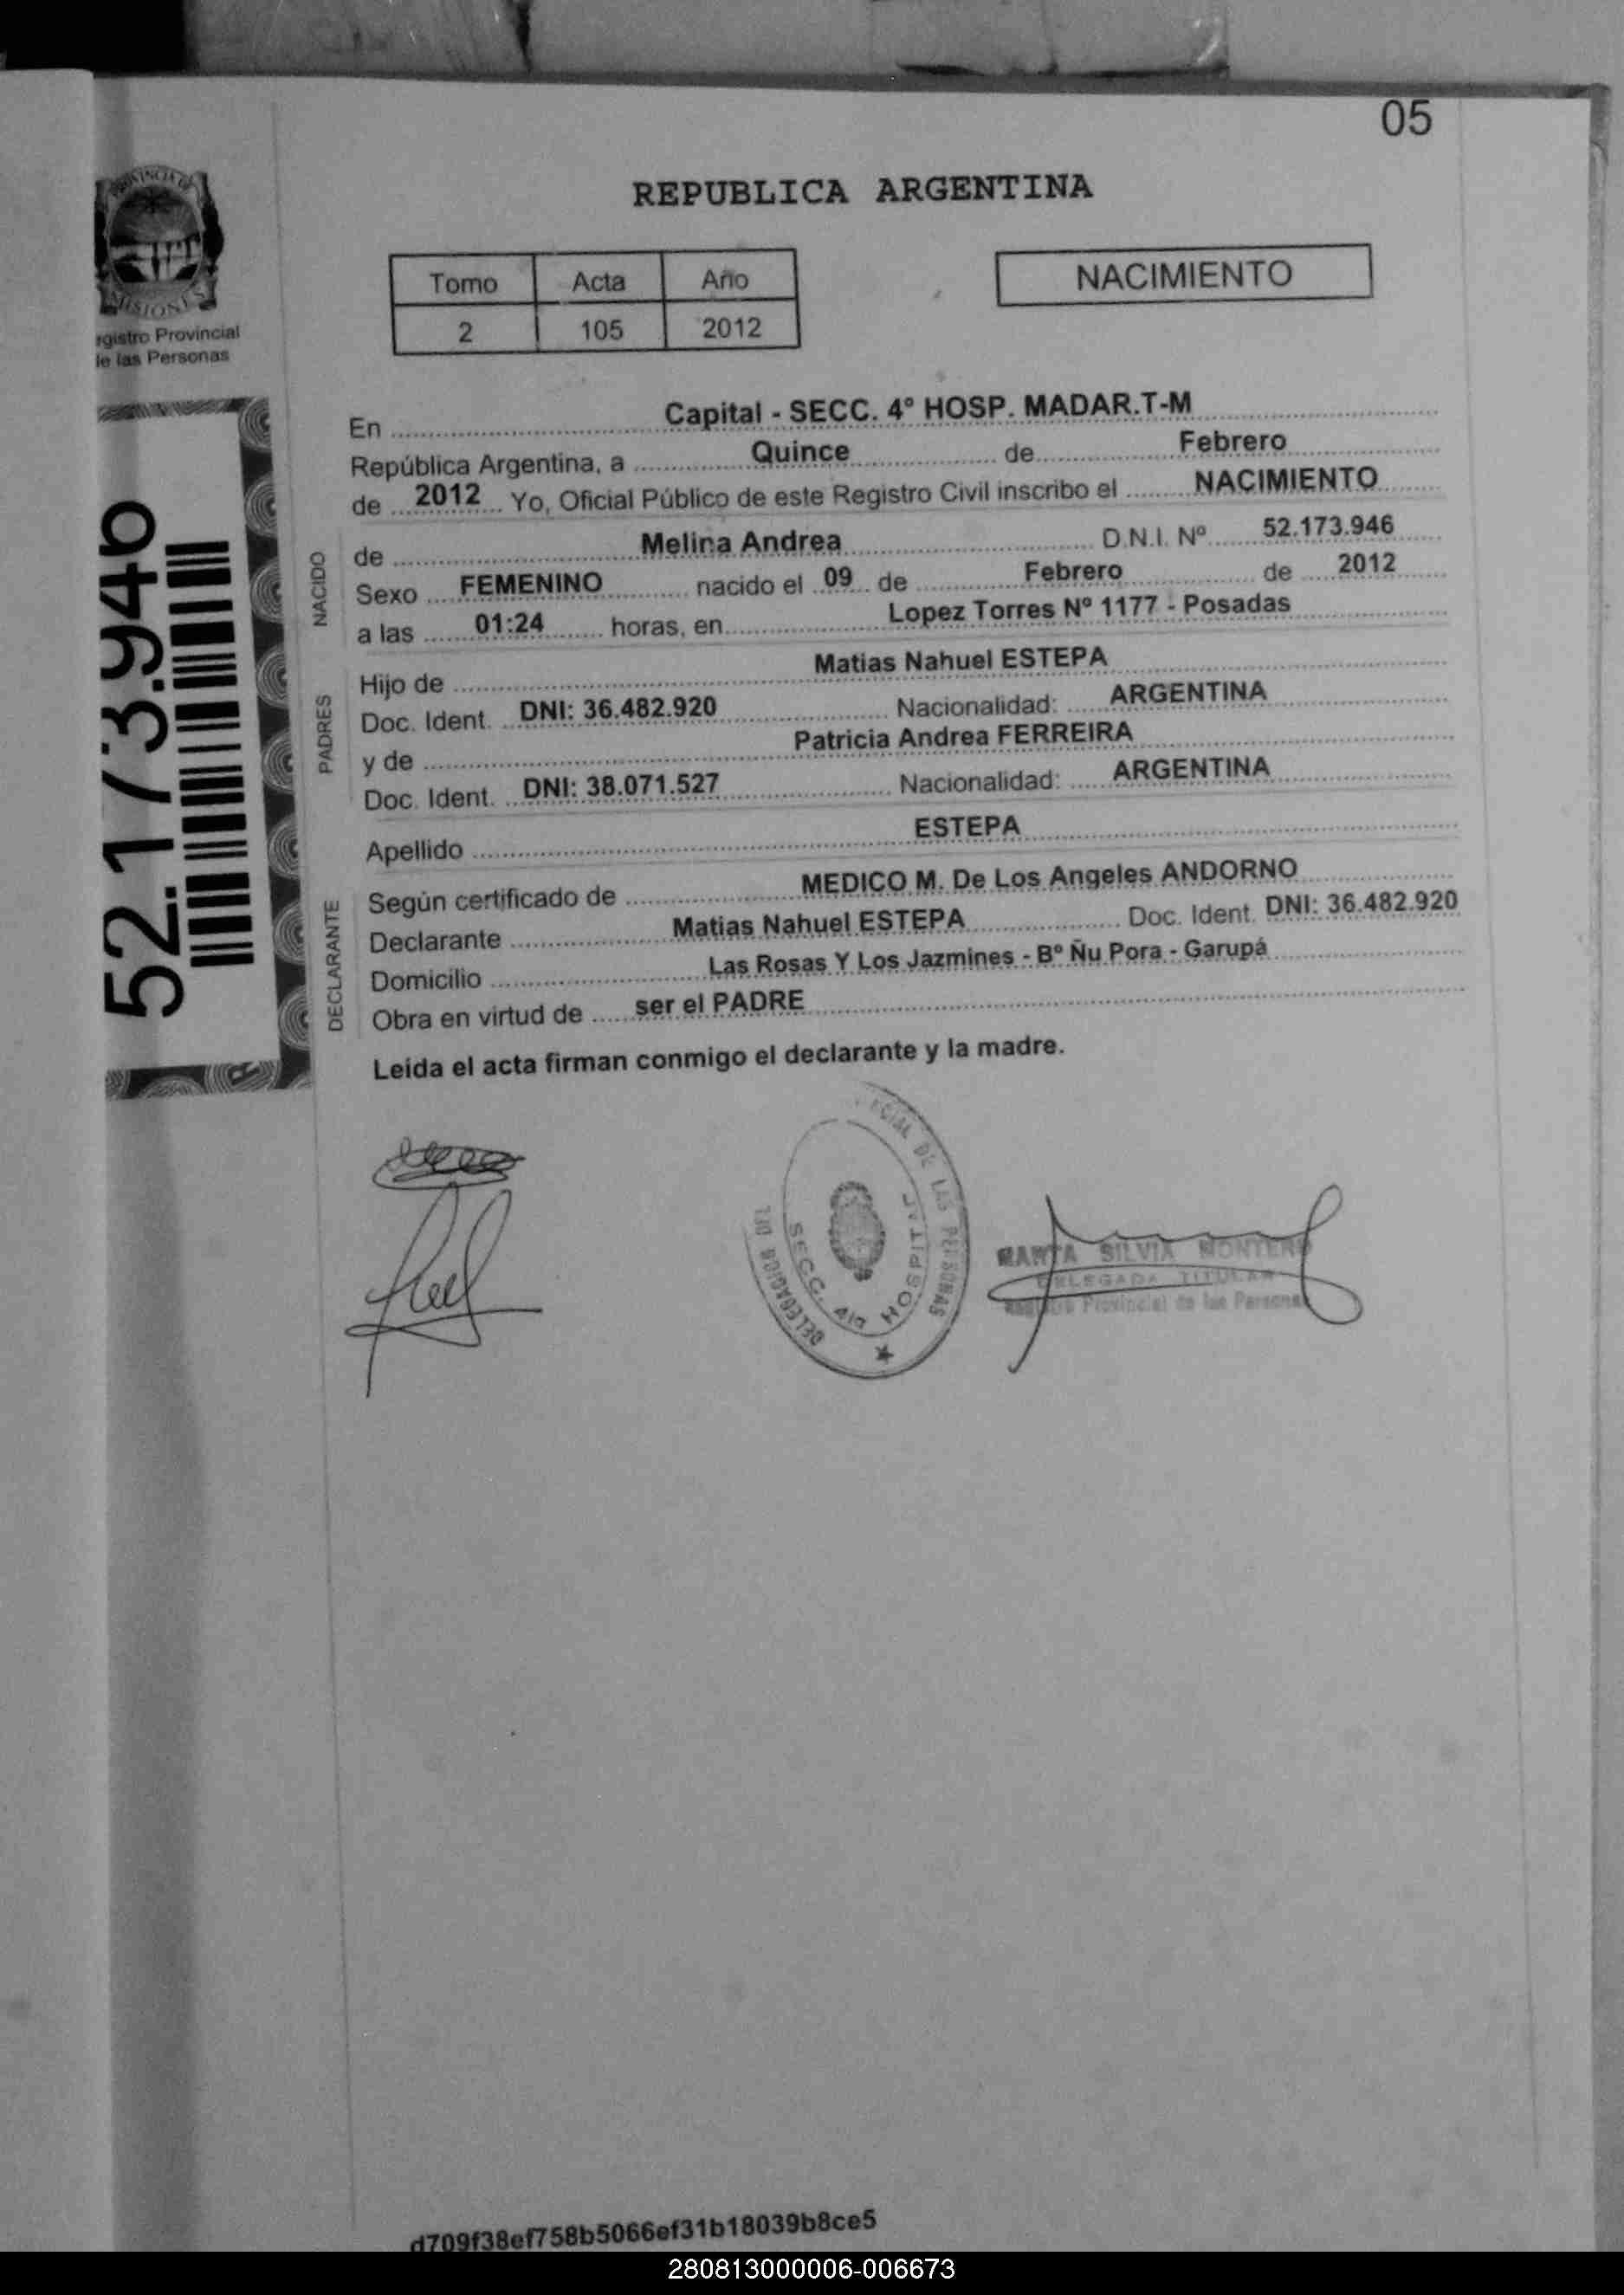 05
PROVINCIA DE
MISIONES
rgistro Provincial
le las Personas
REPUBLICA ARGENTINA
Tomo Acta Año
2 105 2012
NACIMIENTO
52.173.946
En Capital - SECC. 4º HOSP. MADAR.T-M
República Argentina, a Quince de Febrero
de 2012 Yo, Oficial Público de este Registro Civil inscribo el NACIMIENTO
NACIDO
de Melina Andrea D.N.I. Nº 52.173.946
Sexo FEMENINO nacido el 09 de Febrero de 2012
a las 01:24 horas, en Lopez Torres Nº 1177 - Posadas
PADRES
Hijo de Matias Nahuel ESTEPA
Doc. Ident. DNI: 36.482.920 Nacionalidad: ARGENTINA
y de Patricia Andrea FERREIRA
Doc. Ident. DNI: 38.071.527 Nacionalidad: ARGENTINA
Apellido ESTEPA
DECLARANTE
Según certificado de MEDICO M. De Los Angeles ANDORNO
Declarante Matias Nahuel ESTEPA Doc. Ident. DNI: 36.482.920
Domicilio Las Rosas Y Los Jazmines - Bº Ñu Pora - Garupá
Obra en virtud de ser el PADRE
Leida el acta firman conmigo el declarante y la madre.
DE LAS PERSONAS
SECC. 4ta HOSPITAL
MARTA SILVIA MONTERO
DELEGADA TITULAR
Registro Provincial de las Personas
d709f38ef758b5066ef31b18039b8ce5
280813000006-006673